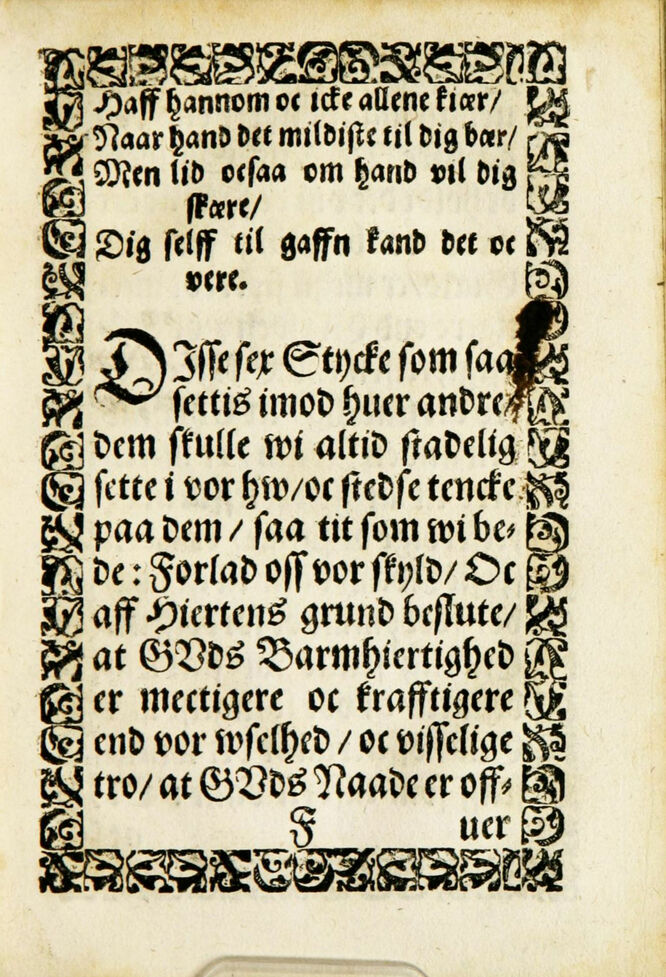 Haff hannom oc icke allene kiær/
Naar hand det mildiste til dig bær/
Men lid ocsaa om hand vil dig
skære/
Dig selff til gaffn kand det oc
vere.
DJsse sex Stycke som saa
settis imod huer andre/
dem skulle wi altid stadelig
sette i vor hw/oc stedse tencke
paa dem / saa tit som wi be⸗
de: Forlad oss vor skyld/ Oc
aff Hiertens grund beslute/
at GVds Barmhiertighed
er mectigere oc krafftigere
end vor wselhed / oc visselige
tro/ at GVds Naade er off⸗
F uer